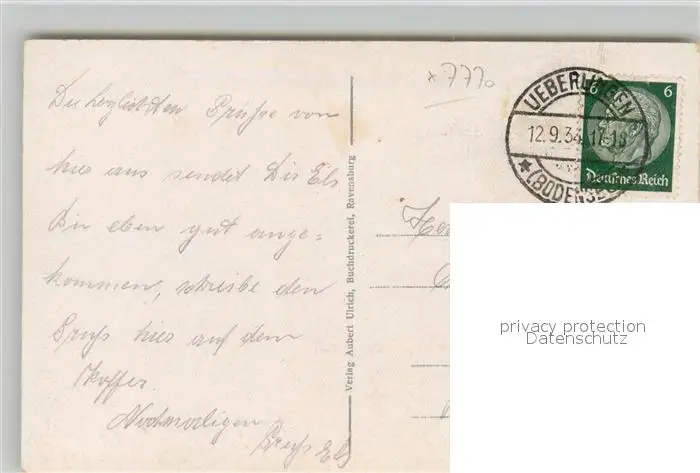 Die herzlichsten Grüße von
hier aus sendet Dir Els
Bin eben gut ange=
kommen, schreibe den
Gruß hier auf dem
Koffer.
Nochmaligen
Gruß Els
Verlag Aubert Ulrich, Buchdruckerei, Ravensburg
x 7770
UEBERLINGEN
12.9.34.17-18
(BODENSEE)
6 6
Deutsches Reich
privacy protection
Datenschutz